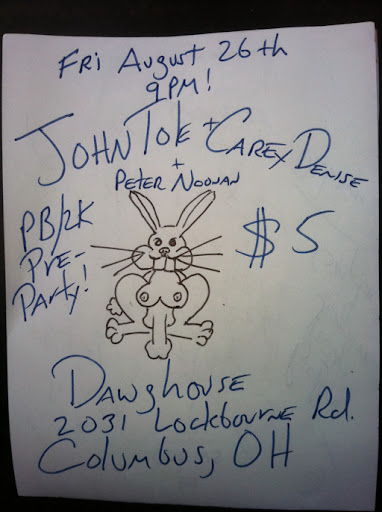 Fri August 26th
9PM!
John Tole + Carey Denise
+
Peter Noonan
PB/2K
Pre-
Party!
$5
Dawghouse
2031 Lockbourne Rd.
Columbus, OH